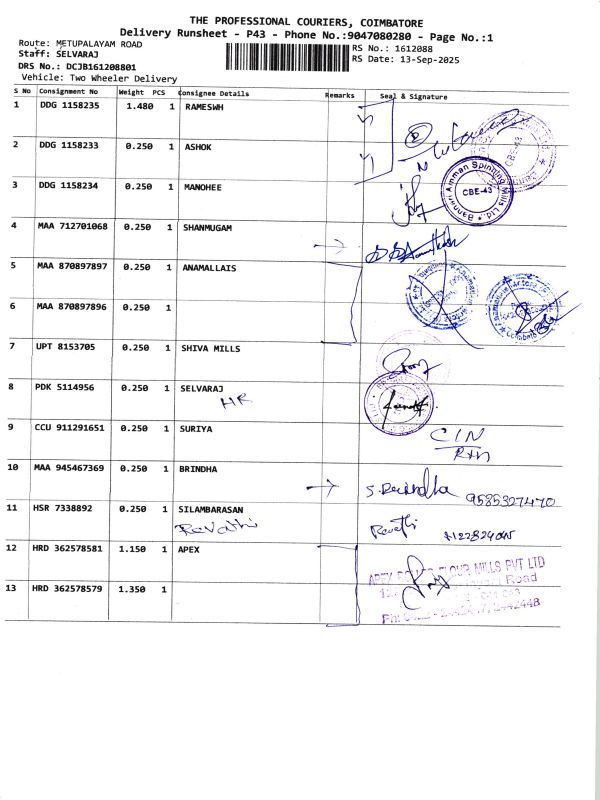 THE PROFESSIONAL COURIERS, COIMBATORE
Delivery Runsheet - P43 - Phone No.:9047080280 - Page No.:1
Route: METUPALAYAM ROAD RS No.: 1612088
Staff: SELVARAJ RS Date: 13-Sep-2025
DRS No.: DCJB161208801
Vehicle: Two Wheeler Delivery
S No Consignment No Weight PCS Consignee Details Remarks Seal & Signature
1 DDG 1158235 1.480 1 RAMESWH
2 DDG 1158233 0.250 1 ASHOK
CBE-43
3 DDG 1158234 0.250 1 MANOHEE
Amman Spinning Mills Ltd.
CBE-43
4 MAA 712701068 0.250 1 SHANMUGAM
5 MAA 870897897 0.250 1 ANAMALLAIS
6 MAA 870897896 0.250 1
7 UPT 8153705 0.250 1 SHIVA MILLS
8 PDK 5114956 0.250 1 SELVARAJ
HR
9 CCU 911291651 0.250 1 SURIYA
CIN
RTN
10 MAA 945467369 0.250 1 BRINDHA
9585327470
11 HSR 7338892 0.250 1 SILAMBARASAN
Revathi Revathi
12 HRD 362578581 1.150 1 APEX
APEX FLOUR MILLS PVT LTD
Road
13 HRD 362578579 1.350 1
2442448